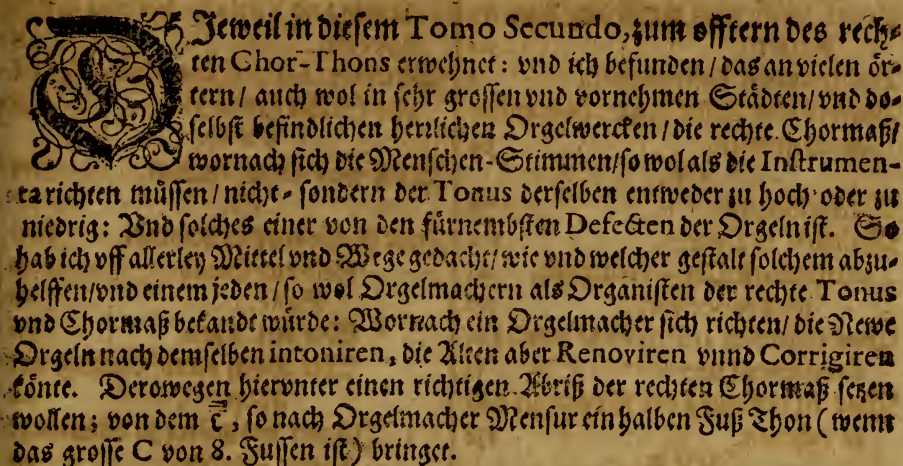 DJeweil in diesem Tomo Secundo, zum öfftern des rech-
ten Chor-Thons erwehnet: vnd ich befunden / das an vielen ör-
tern / auch wol in sehr grossen vnd vornehmen Städten / vnd do-
selbst befindlichen herrlichen Orgelwercken / die rechte Chormaß /
wornach sich die Menschen-Stimmen / so wol als die Instrumen-
ta richten müssen / nicht- sondern der Tonus derselben entweder zu hoch oder zu
niedrig: Vnd solches einer von den fürnembsten Defecten der Orgeln ist. So
hab ich vff allerley Mittel vnd Wege gedacht / wie vnd welcher gestalt solchem abzu-
helffen / vnd einem jeden / so wol Orgelmachern als Organisten der rechte Tonus
vnd Chormaß bekandt würde: Wornach ein Orgelmacher sich richten / die Newe
Orgeln nach demselben intoniren, die Alten aber Renoviren vnnd Corrigiren
könte. Derowegen hiervnter einen richtigen Abriß der rechten Chormaß setzen
wollen; von dem c̿, so nach Orgelmacher Mensur ein halben Fuß Thon (wenn
das grosse C von 8. Fussen ist) bringet.